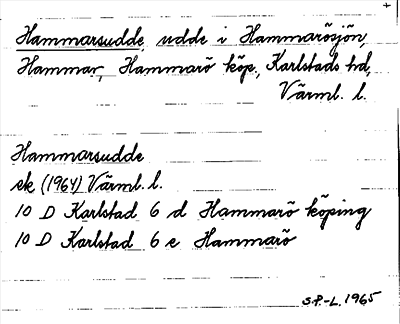 Hammarsudde, udde i Hammarösjön,
Hammar, Hammarö köp., Karlstads hd,
Värml. l.
Hammarsudde
ek (1964) Värml. l.
10 D Karlstad 6 d Hammarö köping
10 D Karlstad 6 e Hammarö
S.P.-L. 1965